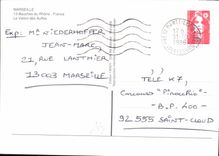 MARSEILLE
13 Bouches du Rhône - France
Le Vallon des Auffes
Exp: Mr NIEDERHOFFER
JEAN-MARC,
21, RUE LANTHIER
13003 MARSEILLE
TELE K7,
Concours "Pinocchio"
B.P. 400 -
92 555 SAINT-CLOUD